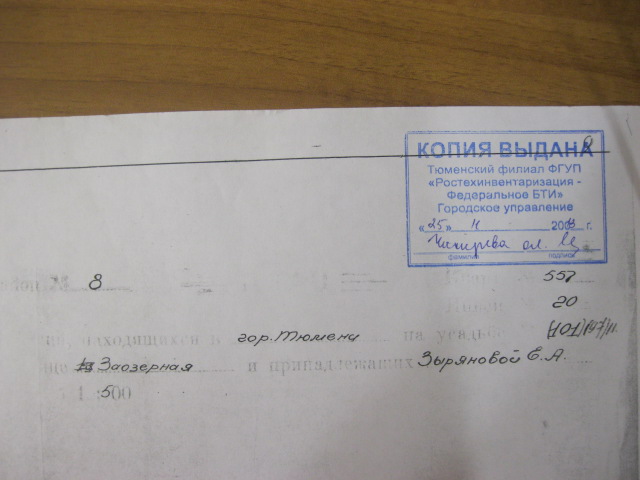 КОПИЯ ВЫДАНА
Тюменский филиал ФГУП
«Ростехинвентаризация -
Федеральное БТИ»
Городское управление
«25» 200 г.
фамилия подпись
8 557
20
находящихся в гор. Тюмени на усадьбе
Заозерная и принадлежащих Зыряновой Е.А.
1:500